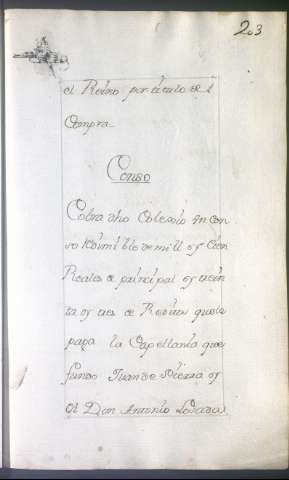 203
el Reino por titulo de
Compra
Censo
Cobra dho Colexio un Cen
so redimible de mill y Cien
Reales de principal y trein
ta y tres de Reditos que le
paga la Capellania que
fundo Juan de Sierra y
el Don Antonio